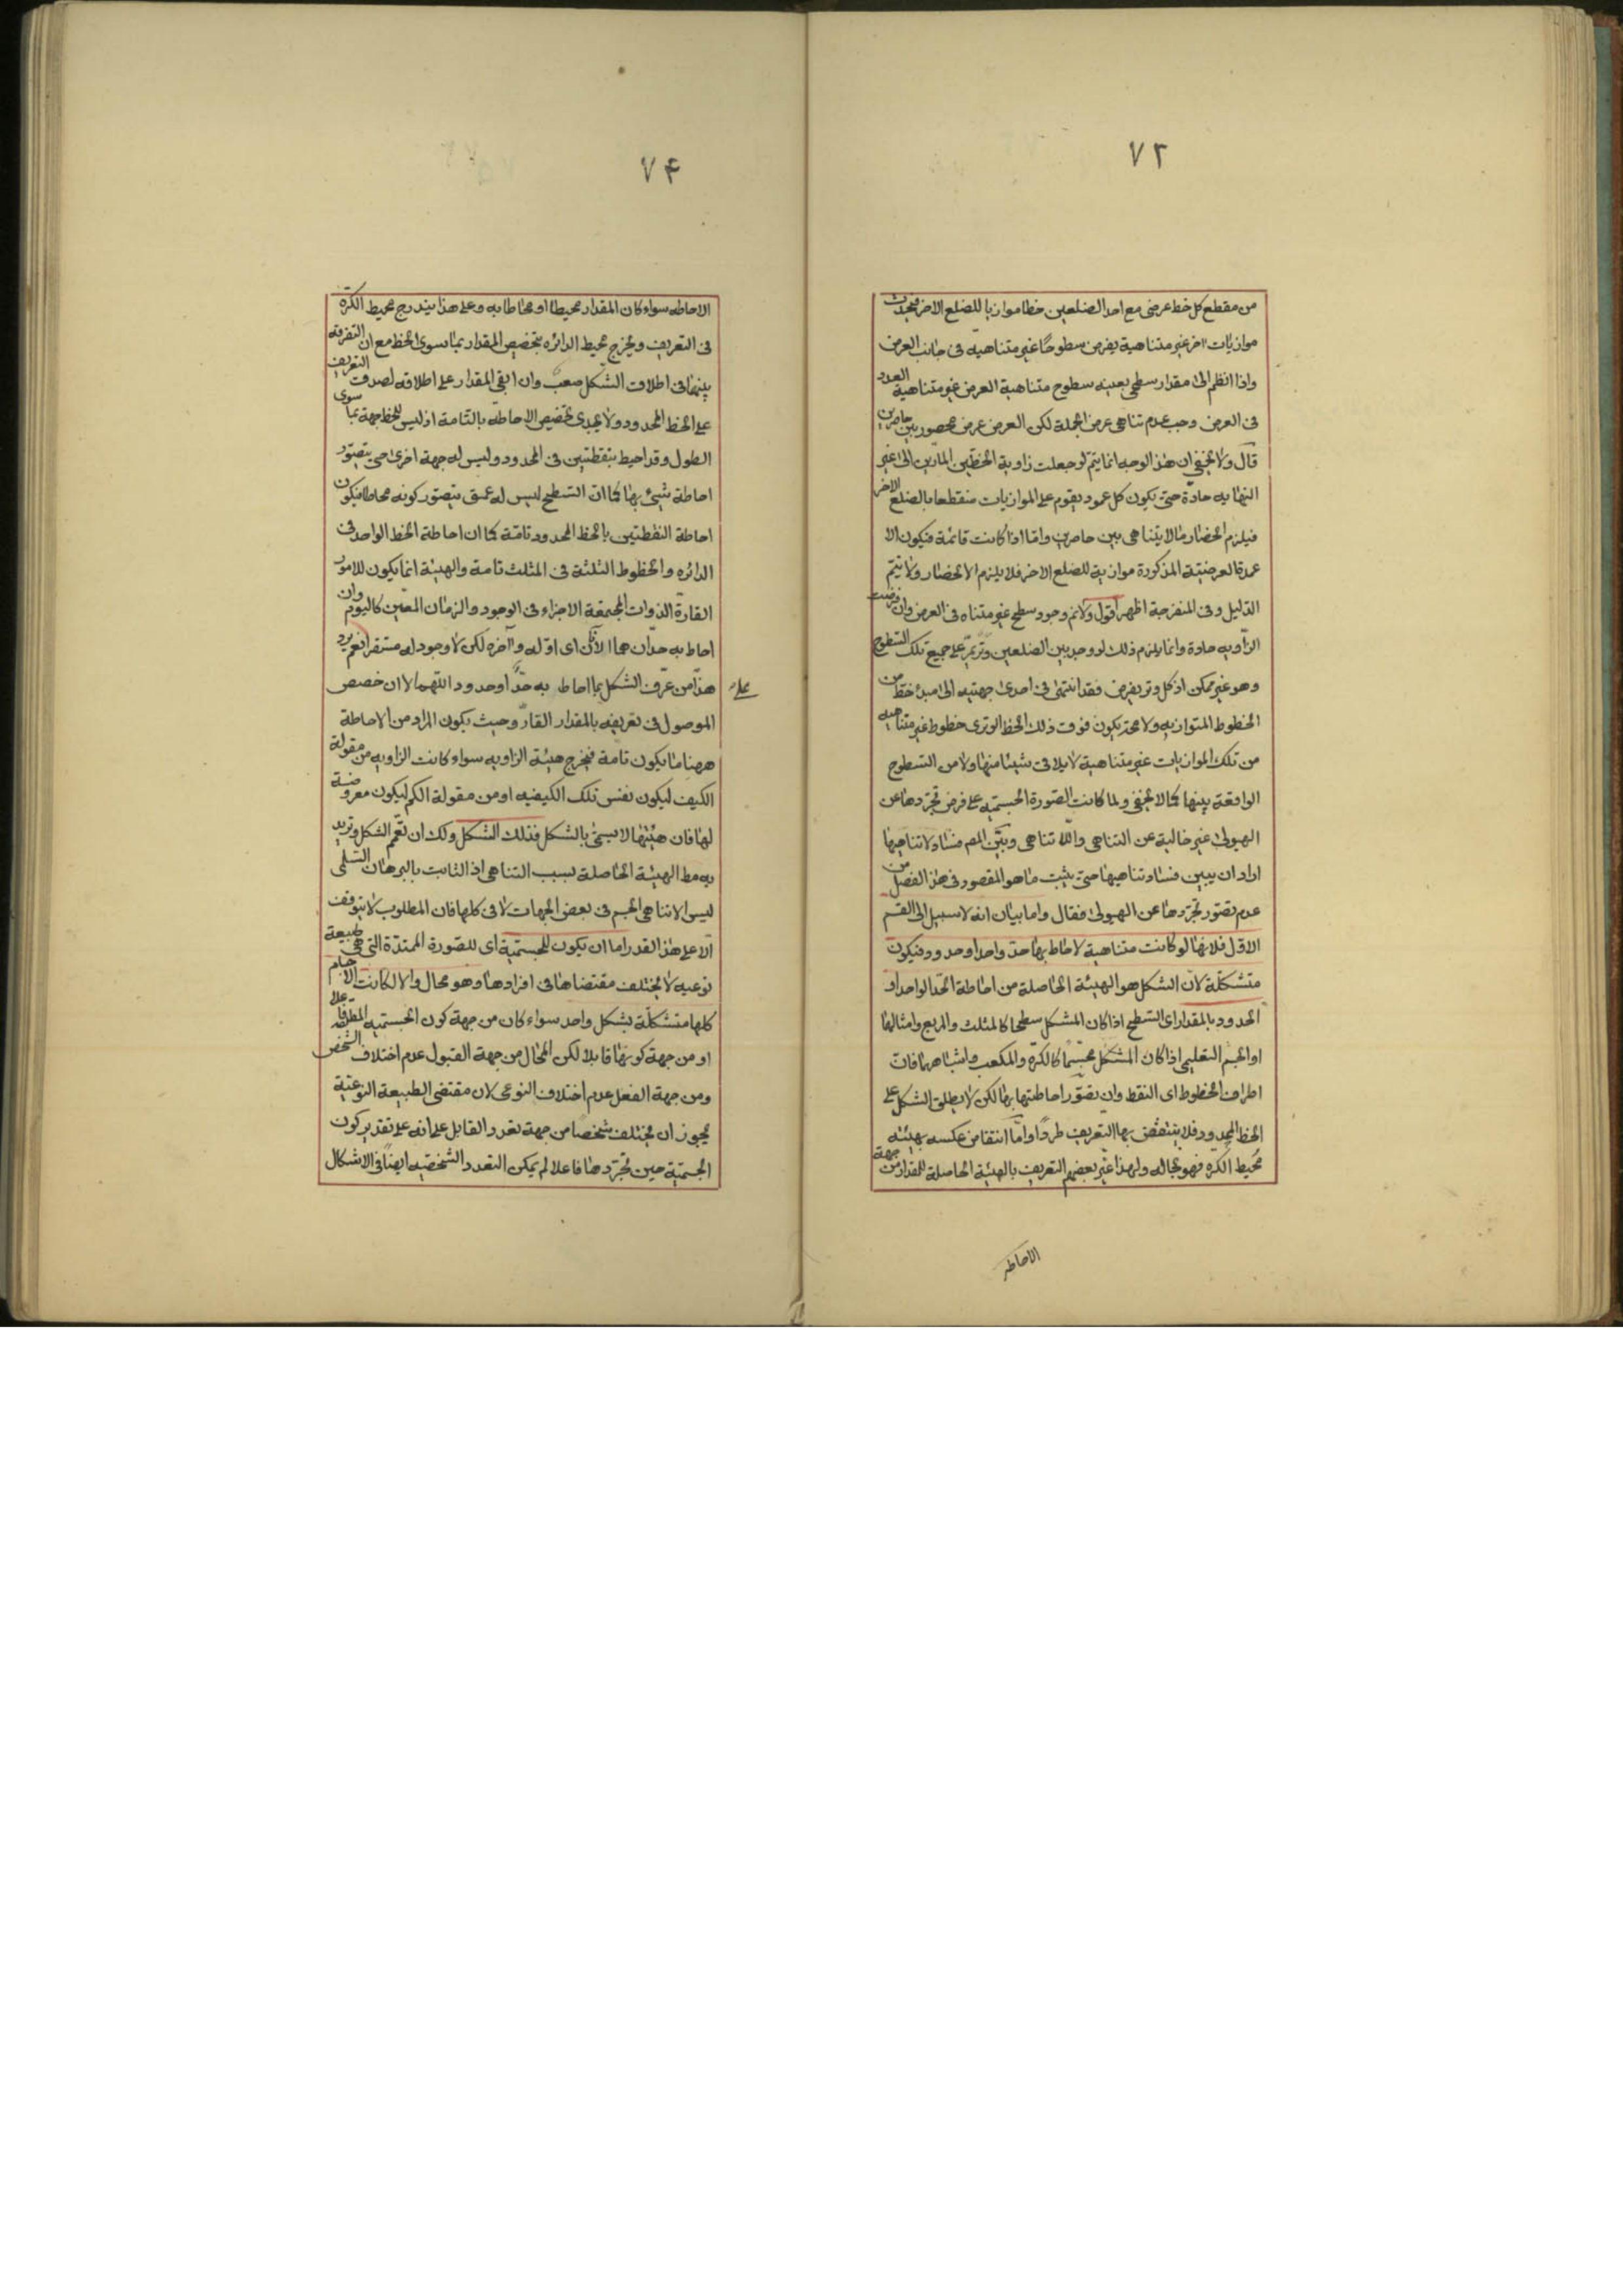 ٧٢
من مقطع كل خط عرضى مع احد الضلعين خطا موازيا للضلع الاخر فيحدث
موازيات اخر غير متناهية يفرض سطوحًا غير متناهيه فى جانب العرض
واذا انظم الى مقدار سطحى بعينه سطوح متناهية العرض غير متناهية العدد
فى العرض وجب عدم تناهى عرض الجملة لكن العرض عرض محصور بين حاصرين
قال ولا يخفى ان هذا الوجه انما يتم لو جعلت زاوية الخطين المارّين الى غير
النهايه حادّة حتى يكون كل عمود يقوم على الموازيات منقطعا بالضلع الاخر
فيلزم انحصار مالا يتناهى بين حاصرين واما اذا كانت قائمة فيكون الا
عمدة العرضيّة المذكورة موازية للضلع الاخر فلا يلزم الانحصار ولا يتم
الدّليل وفى المنفرجة اظهر اقول ولانم وجود سطح غير متناه فى العرض وان فرضت
الزاويه حادة وانما يلزم ذلك لو وجد بين الضلعين وتر يمرّ على جميع تلك السّطوح
وهو غير ممكن اذ كل وتر يفرض فقد انتهى فى احدى جهتيه الى مبدء خط من
الخطوط المتوازيه ولا محة يكون فوق ذلك الخط الوترى خطوط غير متناهيه
من تلك الموازيات غير متناهية لا يلاقى شيئا منها ولا من السّطوح
الواقعة بينها كما لا يخفى ولما كانت الصّورة الجسميّه على فرض تجرّدها عن
الهيولى غير خالية عن التناهى واللا تناهى وبيّن المص فساد لا تناهيها
اراد ان يبين فساد تناهيها حتى يثبت ما هو المقصود فى هذا الفصل من
عدم تصّور تجرّدها عن الهيولى فقال واما بيان انه لا سبيل الى القسم
الاوّل فلانها لو كانت متناهية لاحاط بها حدّ واحد او حدود فيكون
متشكلة لانّ الشكل هو الهيئة الحاصلة من احاطة الحدّ الواحد او
الحدود بالمقدار اى السّطح اذا كان المشكل سطحا كالمثلث والمربع وامثالها
او الجسم التعليمى اذا كان المشكل مجسّمًا كالكرّة والمكعب واشباههما فان
اطراف الخطوط اى النقط وان تصوّر احاطتها بها لكن لا يطلق الشكل على
الخط المحدود فلا ينتقض بها التعريف طردًا وامّا انتقاض عكسه بهيئته
محيط الكره فهو بحاله ولهذا غيّر بعضهم التعريف بالهيئة الحاصلة للمقدار من جهة
الاحاطه
٧۴
الاحاطه سواء كان المقدار محيطا او محاطا به وعلى هذا يندرج محيط الكرّة
فى التعريف ويخرج محيط الدائره بتخصيص المقدار بما سوى الخط مع ان التفرقة
بينهما فى اطلاق الشكل صعبٌ وان ابقى المقدار على اطلاقه لصدق التعريف
على الخط المحدود ولا يجدى تخصيص الاحاطة بالتّامة اذ ليس للخط جهة بما سوى
الطول وقد احيط بنقطتين فى المحدود وليس له جهة اخرى حتى يتصوّر
احاطة شيئ بها كما انّ السّطح ليس له عمق يتصور كونه محاطا فيكون
احاطة النقطتين بالخط المحدود تامّة كما ان احاطة الخط الواحد فى
الدائره والخطوط الثلثة فى المثلث تامة والهيئة انما يكون للامور
القارّة الذوات المجتمعة الاجزاء فى الوجود والزمان المعّين كاليوم وان
احاط به حدّان هما الآن اى اوّله وآخره لكن لا وجود له مستقرا نعم يرد
على هذا من عرّف الشكل بما احاط به حدًّ او حدود اللّهم الا ان خصص
الموصول فى تعريفه بالمقدار القارّ وحيث يكون المراد من الاحاطة
ههنا ما يكون تامة فيخرج هيئة الزاويه سواء كانت الزاويه من مقولة
الكيف ليكون نفس تلك الكيفيه او من مقولة الكم ليكون معروضة
لها فان هيئتها لا يسمّى بالشكل فذلك الشكل ولك ان تعّمم الشكل وتريد
به مط الهيئة الحاصلة بسبب التناهى اذ الثابت بالبرهان السّلمى
ليس الا تناهى الجسم فى بعض الجهات لا فى كلها فان المطلوب لا يتوقف
الّا على هذا القدر اما ان يكون للجسميّة اى للصّورة الممتدّة التى هى طبيعة
نوعيه لا يختلف مقتضاها فى افرادها وهو محال والا لكانت الاجسام
كلها متشكلّة بشكل واحد سواء كان من جهة كون الجسميه المطلقة فاعلا
او من جهة كونها قابلا لكن المحال من جهة القبول عدم اختلاف الشّخص
ومن جهة الفعل عدم اختلاف النوعى لان مقتضى الطبيعة النوعيّة
يجوز ان يختلف شخصًا من جهة تعدد القابل على انه على تقدير كون
الجسميّة حين تجرّدها فاعلا لم يمكن التعدد الشّخصيّه ايضًا فى الاشكال